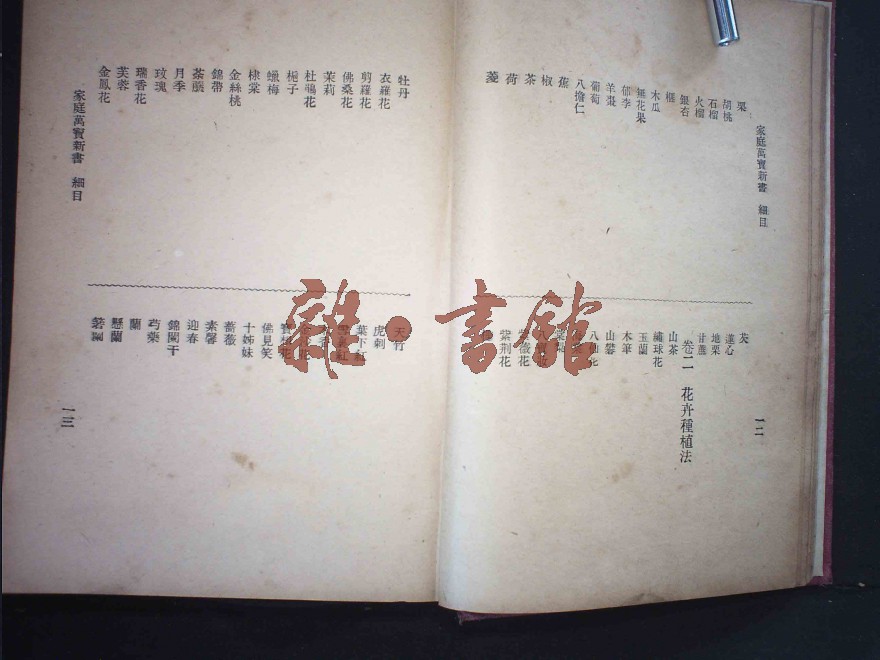 家庭萬寶新書 細目
一二
栗
胡桃
石榴
火榴
銀杏
榧
木瓜
無花果
郁李
羊棗
葡萄
八擔仁
蕉
椒
茶
荷
菱
芡
蓮心
地栗
甘蔗
卷二 花卉種植法
山茶
繡球花
玉蘭
木筆
山礬
紫薇花
紫荆花
牡丹
衣羅花
剪羅花
佛桑花
茉莉
杜鵑花
梔子
蠟梅
棣棠
金絲桃
錦帶
荼蘼
月季
玫瑰
瑞香花
芙蓉
金鳳花
天竹
虎刺
葉下紅
佛見笑
十姊妹
薔薇
素馨
迎春
錦闌干
蘭
芍藥
懸蘭
箬蘭
家庭萬寶新書 細目
一三
雜·書館